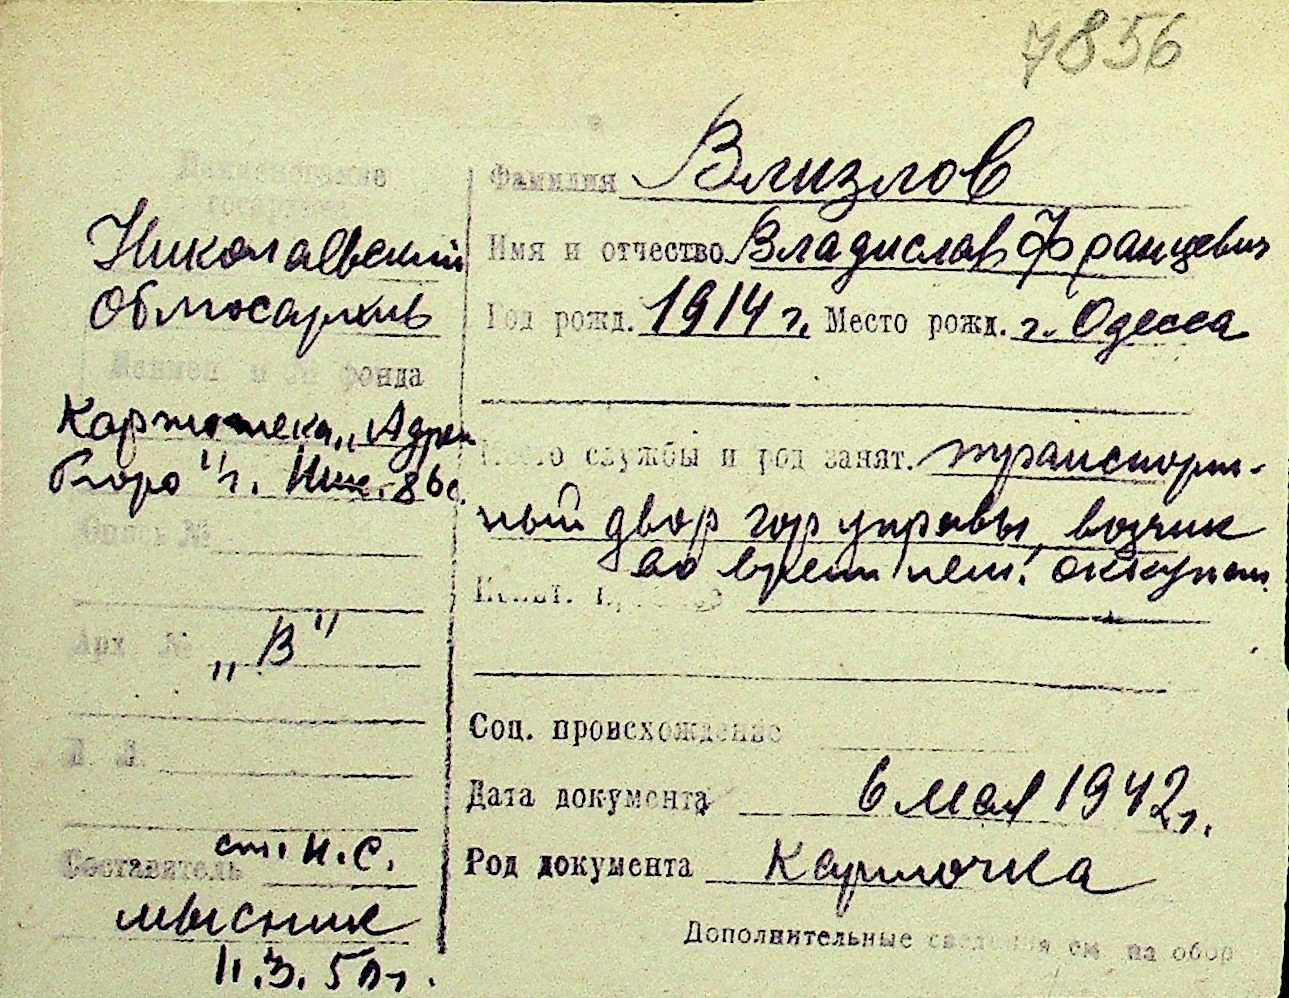 7856
Наименование
госархива
Николаевский
Облгосархив
Наимен и № фонда
Картотека „Адрес
бюро" г. Ник. 86 с.
Опись №
Арх №
„В"
Л. Л.
Составитель ст. н. с.
Мысник
11.3.50 г.
Фамилия Влизлов
Имя и отчество Владислав Францевич
Год рожд. 1914 г. Место рожд. г. Одесса
Место службы и род занят. транспорт-
ный двор гор управы, возчик
во врем нем. оккупац.
Соц. происхождение
Дата документа 6 мая 1942 г.
Род документа Карточка
Дополнительные сведения см на обор